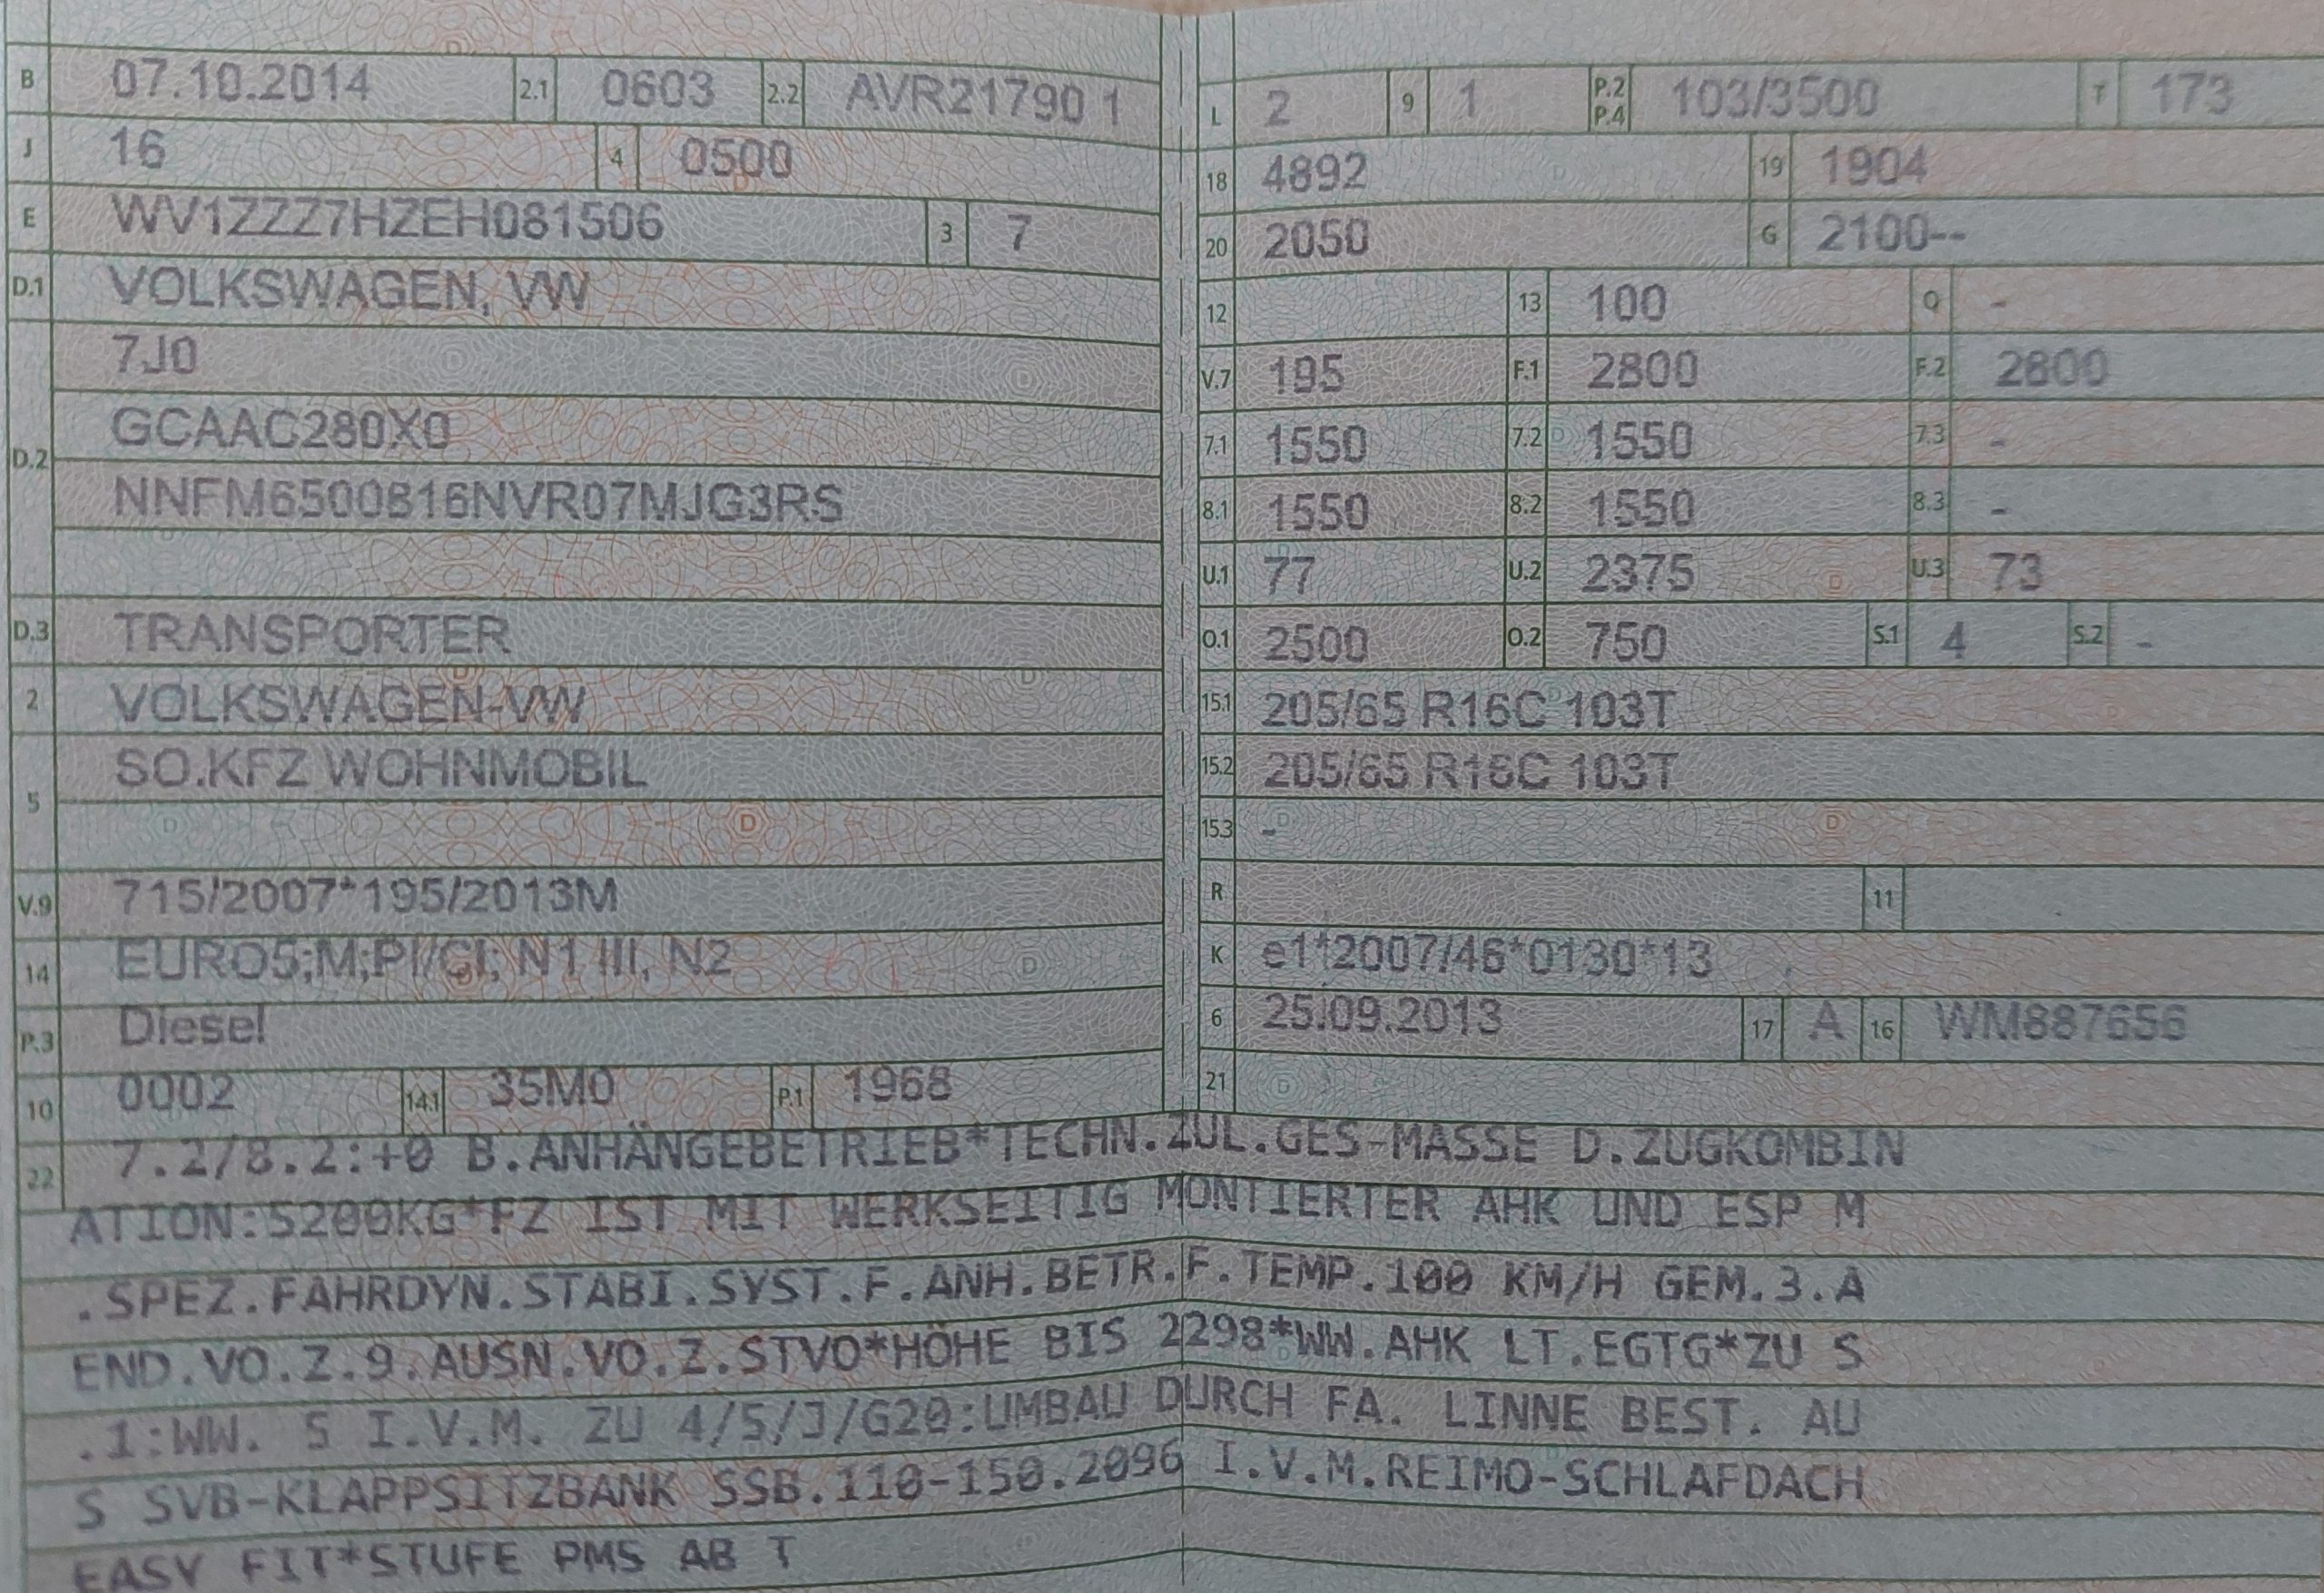 B 07.10.2014 2.1 0603 2.2 AVR21790 1
J 16 4 0500
E WV1ZZZ7HZEH081506 3 7
D.1 VOLKSWAGEN, VW
7J0
GCAAC280X0
D.2
NNFM6500816NVR07MJG3RS
D.3 TRANSPORTER
2 VOLKSWAGEN-VW
SO.KFZ WOHNMOBIL
5
V.9 715/2007*195/2013M
14 EURO5;M;PI/CI; N1 III, N2
P.3 Diesel
10 0002 14.1 35M0 P.1 1968
L 2 9 1 P.2 P.4 103/3500 T 173
18 4892 19 1904
20 2050 G 2100--
12 13 100 Q -
V.7 195 F.1 2800 F.2 2800
7.1 1550 7.2 1550 7.3 -
8.1 1550 8.2 1550 8.3 -
U.1 77 U.2 2375 U.3 73
O.1 2500 O.2 750 S.1 4 S.2 -
15.1 205/65 R16C 103T
15.2 205/65 R16C 103T
15.3 -
R 11
K e1*2007/46*0130*13
6 25.09.2013 17 A 16 WM887656
21
22 7.2/8.2:+0 B.ANHÄNGEBETRIEB*TECHN.ZUL.GES-MASSE D.ZUGKOMBIN
ATION:5200KG*FZ IST MIT WERKSEITIG MONTIERTER AHK UND ESP M
.SPEZ.FAHRDYN.STABI.SYST.F.ANH.BETR.F.TEMP.100 KM/H GEM.3.A
END.VO.Z.9.AUSN.VO.Z.STVO*HÖHE BIS 2298*WW.AHK LT.EGTG*ZU S
.1:WW. 5 I.V.M. ZU 4/5/J/G20:UMBAU DURCH FA. LINNE BEST. AU
S SVB-KLAPPSITZBANK SSB.110-150.2096 I.V.M.REIMO-SCHLAFDACH
EASY FIT*STUFE PM5 AB T